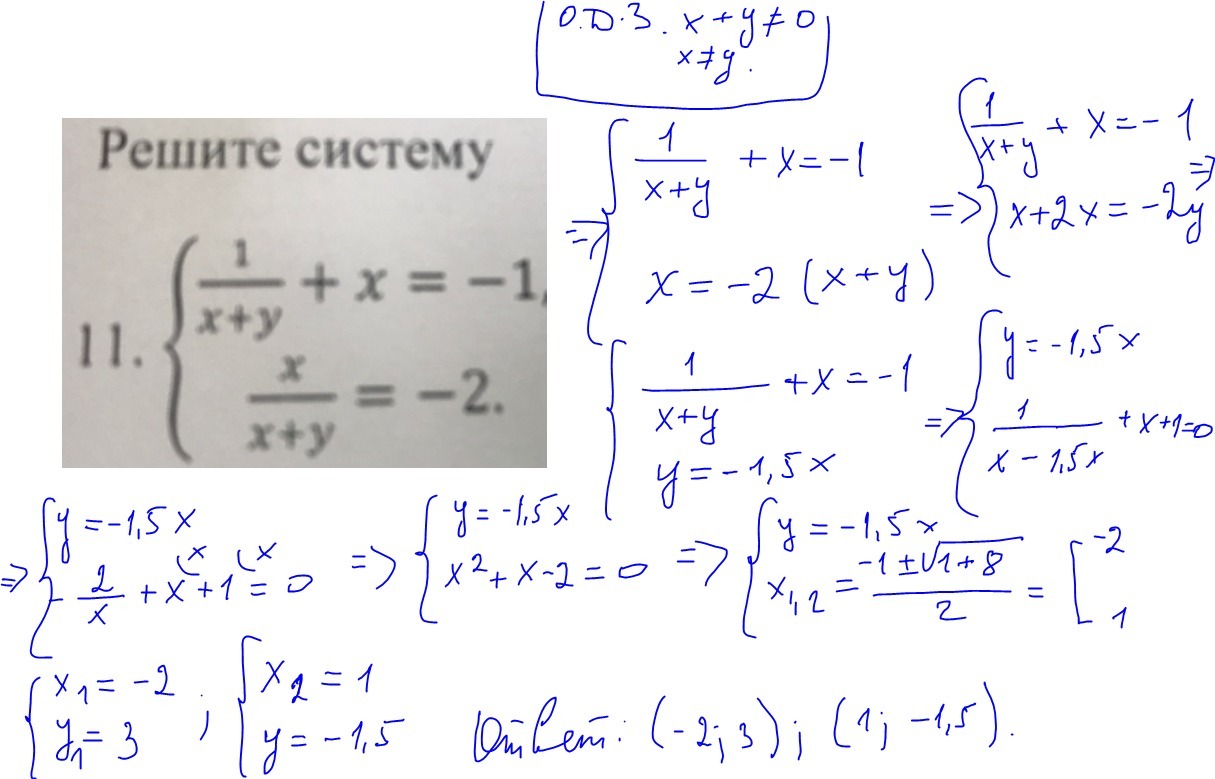 О.D.З. x + y ≠ 0
x ≠ y.
Решите систему
11. { 1/(x+y) + x = −1,
x/(x+y) = −2.
=> { 1/(x+y) + x = −1
x = −2 (x+y)
=> { 1/(x+y) + x = −1
x + 2x = −2y =>
{ 1/(x+y) + x = −1
y = −1,5x
=> { y = −1,5x
1/(x − 1,5x) + x + 1 = 0
=> { y = −1,5x
− 2/x + x\x + 1\x = 0
=> { y = −1,5x
x² + x − 2 = 0
=> { y = −1,5x
x1,2 = (−1 ± √(1+8))/2 = [ −2
1
{ x1 = −2
y1 = 3 ;
{ x2 = 1
y = −1,5
Ответ: (−2; 3); (1; −1,5).